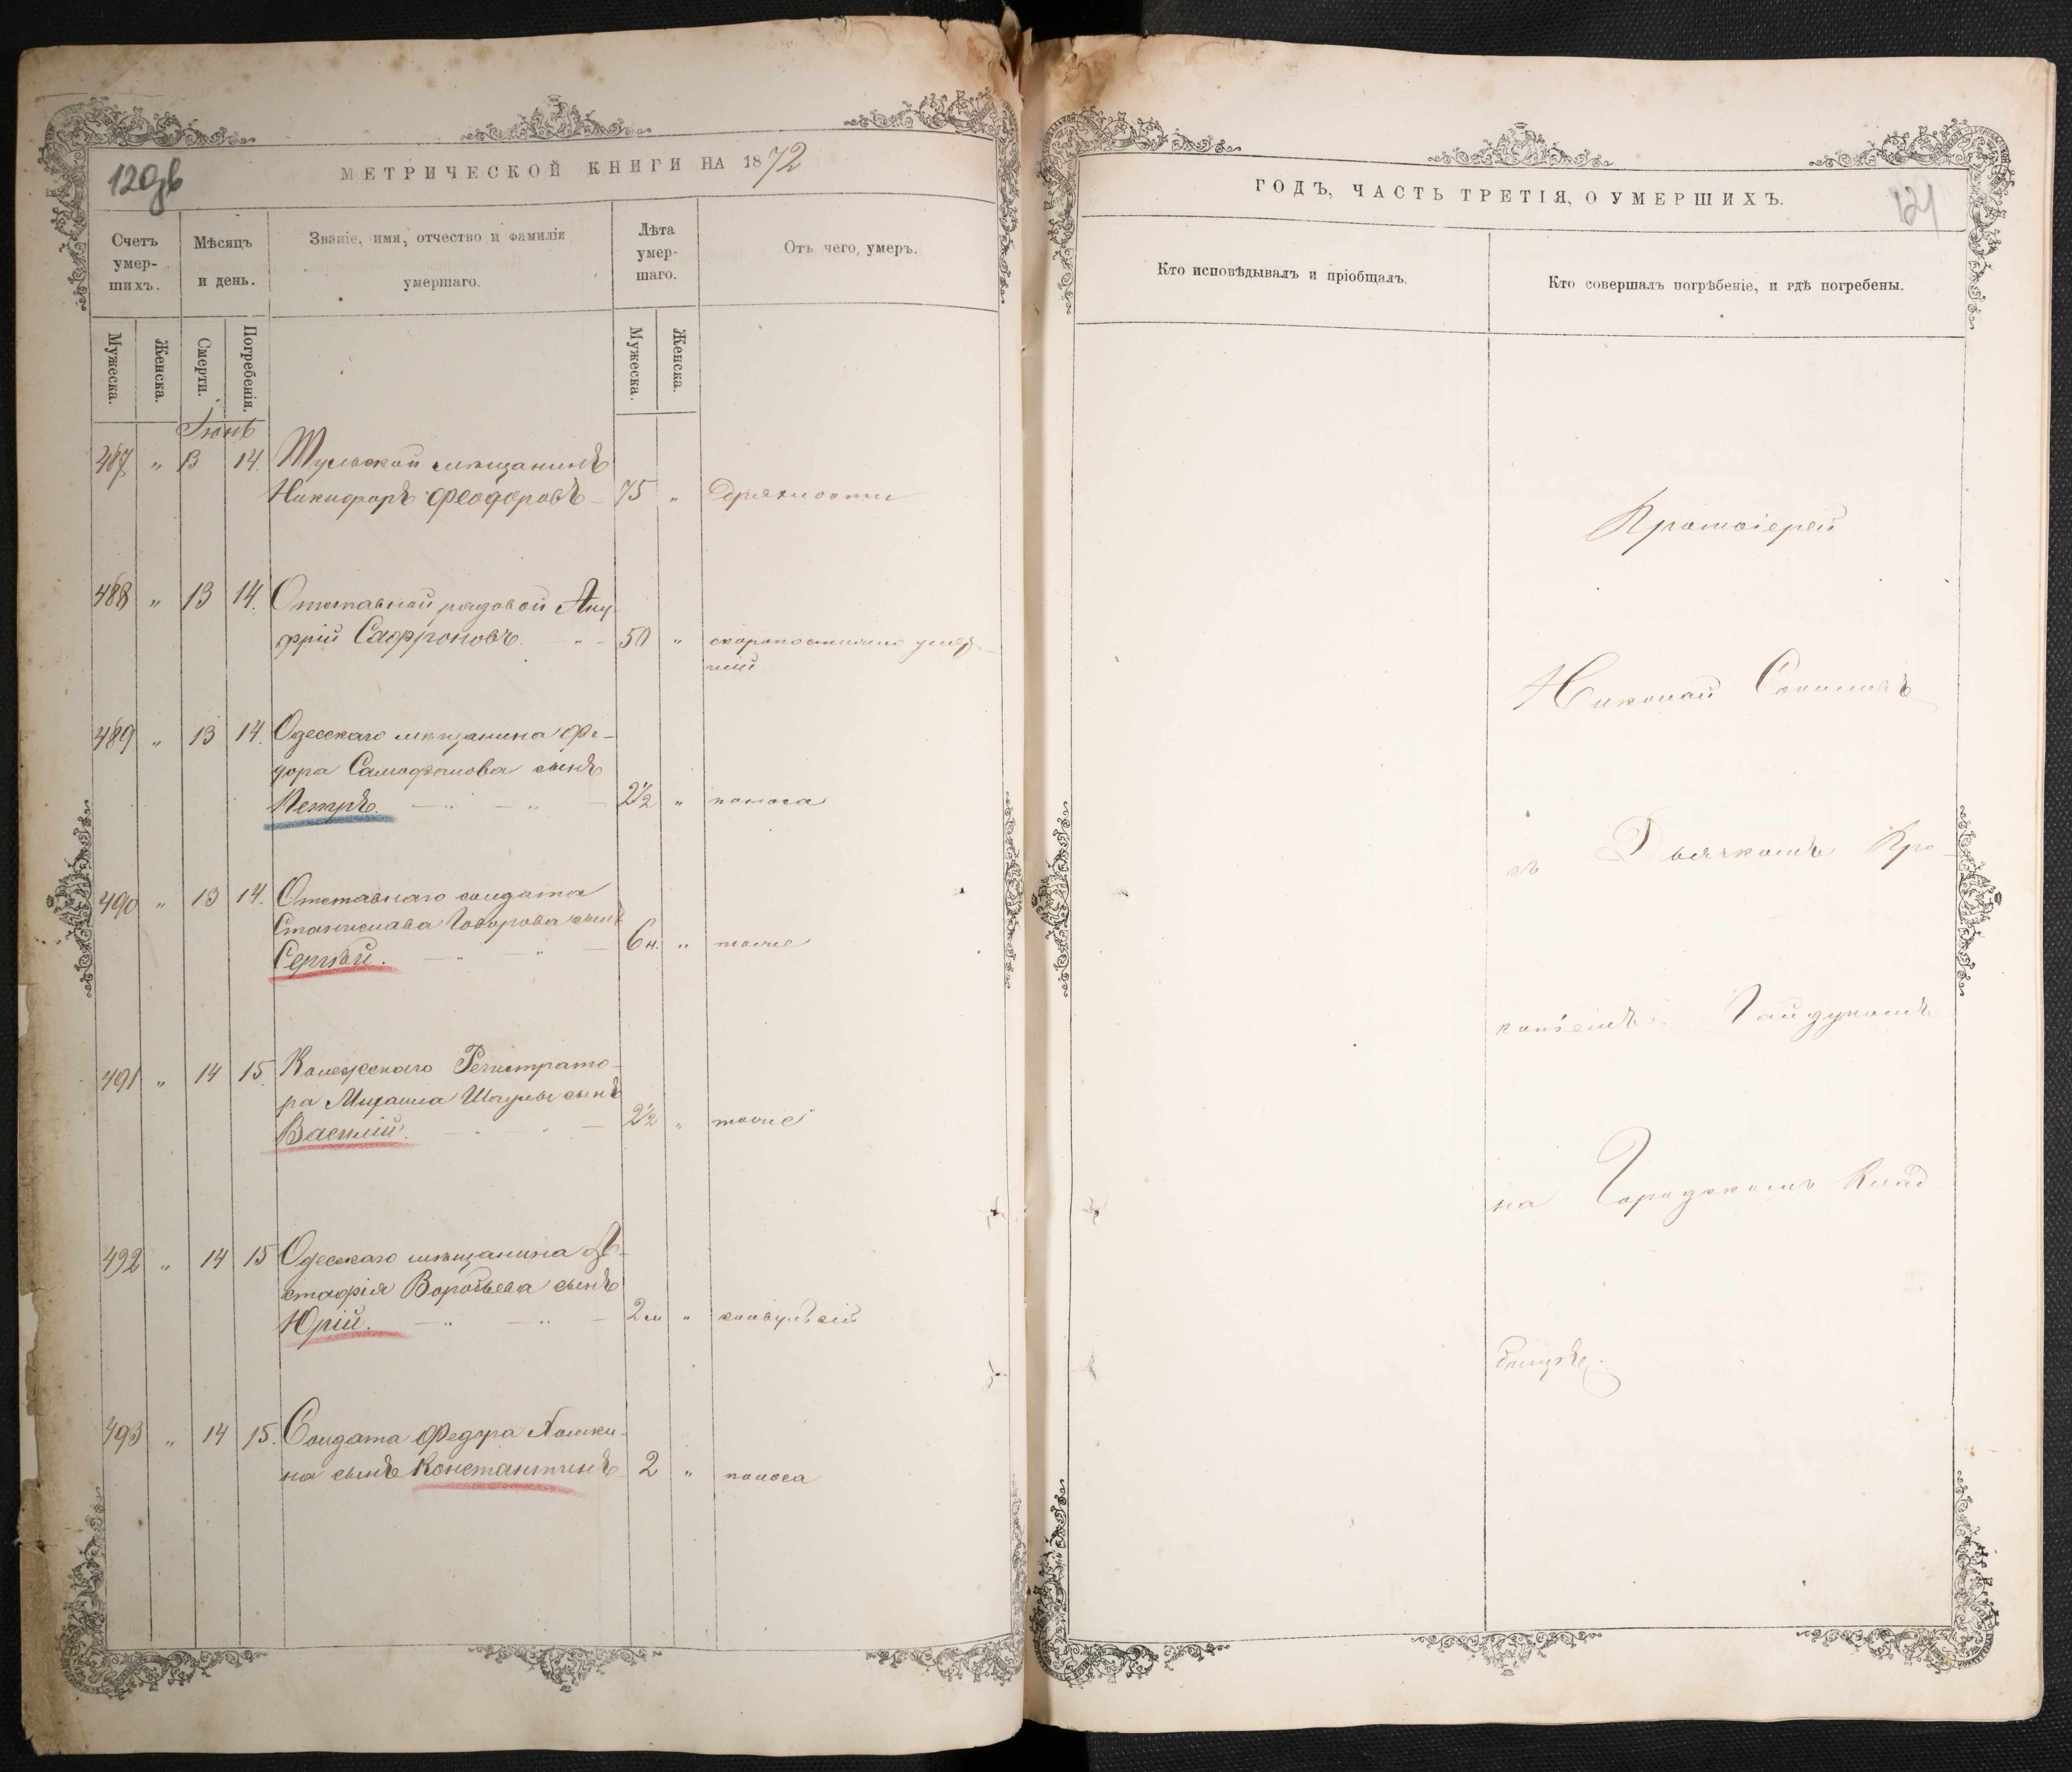 120дв
МЕТРИЧЕСКОЙ КНИГИ НА 1872
Счетъ умер-шихъ.
Мѣсяцъ и день.
Званіе, имя, отчество и фамилія умершаго.
Лѣта умер-шаго.
Отъ чего, умеръ.
Мужеска.
Женска.
Смерти.
Погребенія.
Мужеска.
Женска.
Іюнь
487 " 13 14. Тульской мѣщанинъ
Никифоръ Феодоровъ 75 " Дряхлости
488 " 13 14. Отставной рядовой Ану-
фрій Сафроновъ. 50 " скоропостижно умер-
шій
489 " 13 14. Одесскаго мѣщанина Фе-
дора Самофалова сынъ
Петръ. 2½ " поноса
490 " 13 14. Отставнаго солдата
Станислава Говорова сынъ
Сергѣй. 6 н. " тоже
491 " 14 15. Колежскаго Регистрато-
ра Михаила сынъ
Василій. 2½ " тоже
492 " 14 15 Одесскаго мѣщанина
стафія Воробьева сынъ
Юрій. 2 м " конвульсій
493 " 14 15. Солдата Федора
на сынъ Константинъ 2 " поноса
121
ГОДЪ, ЧАСТЬ ТРЕТІЯ, О УМЕРШИХЪ.
Кто исповѣдывалъ и пріобщалъ.
Кто совершалъ погрѣбеніе, и гдѣ погребены.
Протоіерей
Николай Соколовъ
съ Дьячкомъ Про-
копіемъ Гайдукомъ
на Городскомъ Клад
бищѣ.